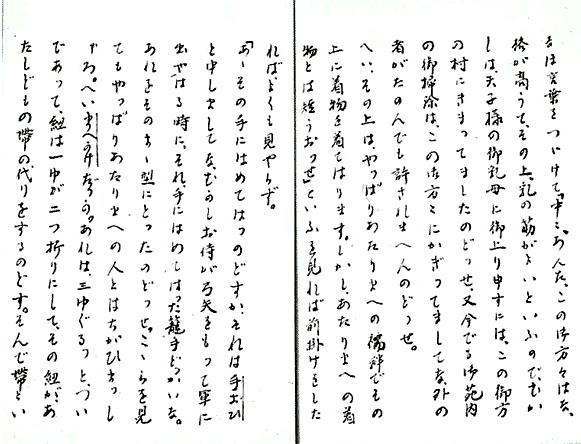 言葉をつゞけて「あんた、この方々はな、
格が高うて、その上、乳の筋がよいといふのでむか
しは、天子様の御乳母に御上り申すには、この御方
の村にきまつてましたのどつせ、又今でも御苑内
の御掃除は、この御方々にかぎつてましてな、外の
者がたのんでも許されまへんのどつせ。
へい、その上は、やつぱりあたりまへの襦袢でその
上に着物を着てはります。しかし、あたりまへの着
物とは短うおつせ」といふを見れば前掛けをした
ればよくも見やらず。
「あゝその手にはめてはつのどすか、それは手おひ
と申しましてな、むかしお侍が弓矢をもつて軍に
出やはる時に、それ、手にはめてはつた籠手どつかいな。
あれをそのまゝ型にとつたのどつせ。こゝらを見
てもやつぱりあたりまへの人とはちがひまつし
やろ。へい、まへかけだつか。あれは、三ゆぐるつと、つい
であつて、紐は一ゆが二つ折りにして、その紐がわ
たしどもの帯の代りをするのどす。そんで帯とい